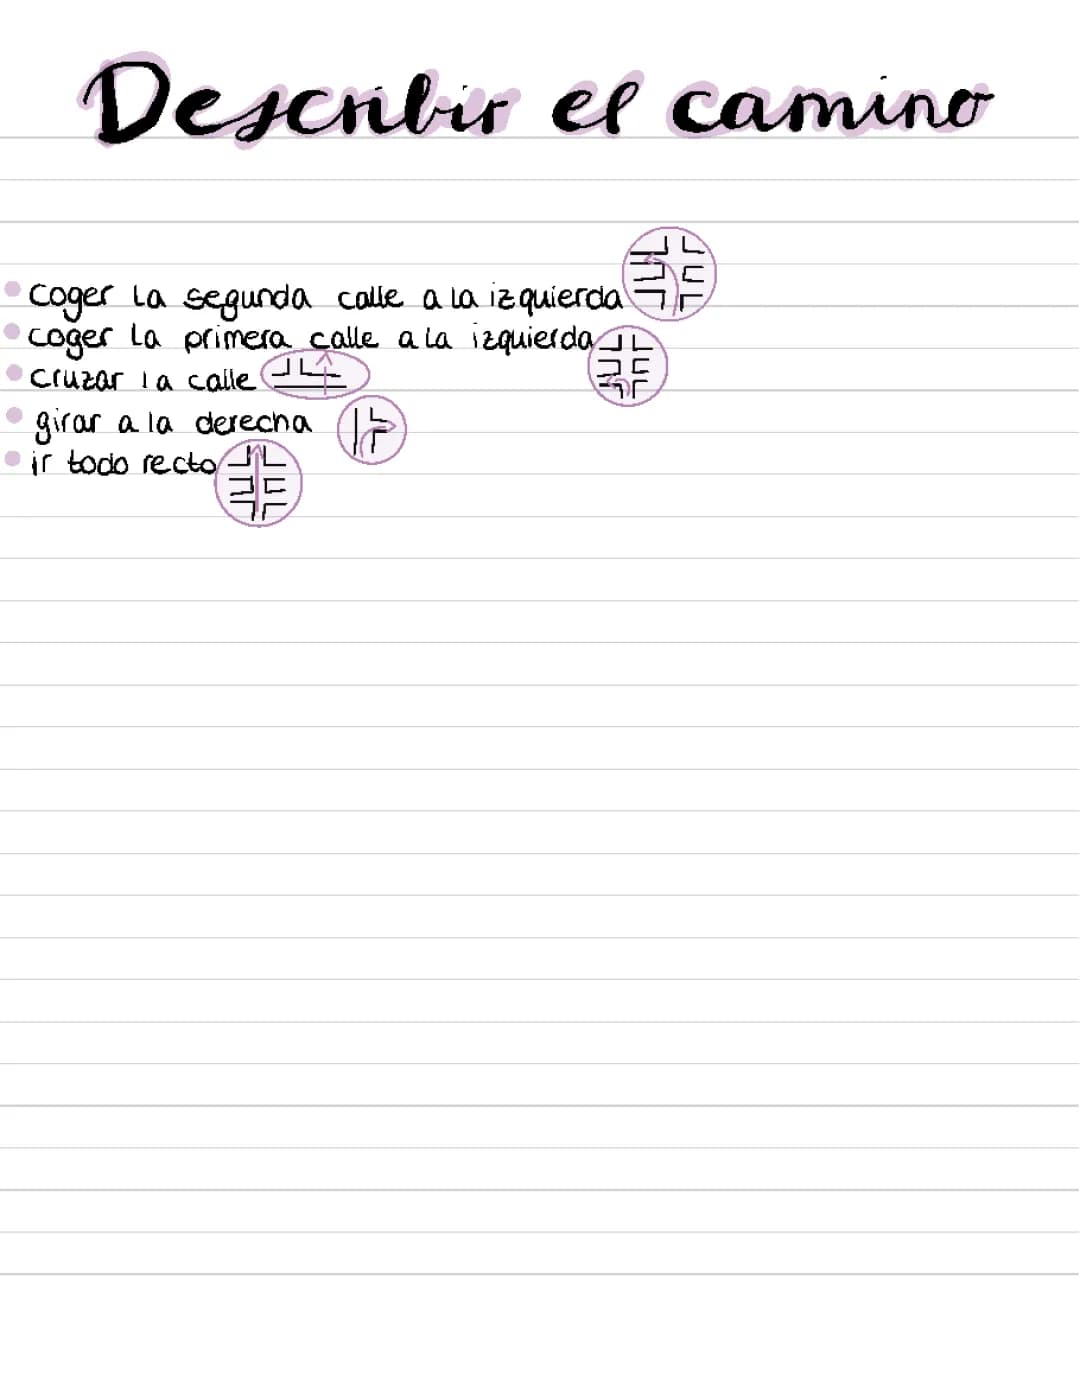 Describir el camino
coger la segunda calle a la izquierda
coger la primera calle a la izquierda
cruzar la calle
girar a la derecha
ir todo recto